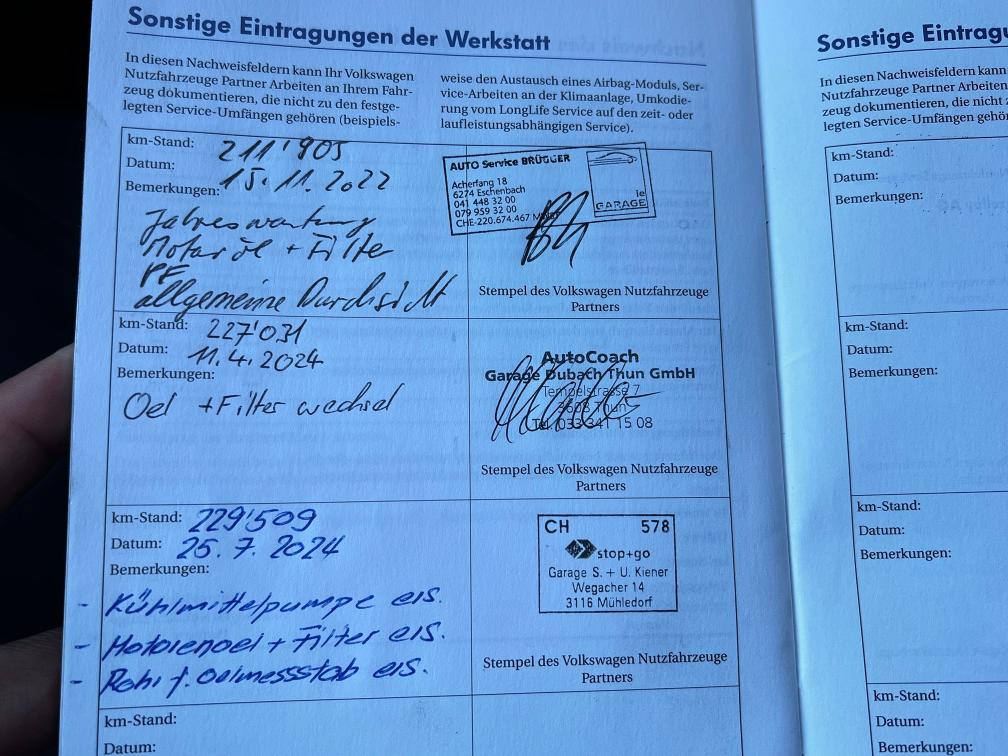 Sonstige Eintragungen der Werkstatt
In diesen Nachweisfeldern kann Ihr Volkswagen
Nutzfahrzeuge Partner Arbeiten an Ihrem Fahr-
zeug dokumentieren, die nicht zu den festge-
legten Service-Umfängen gehören (beispiels-
weise den Austausch eines Airbag-Moduls, Ser-
vice-Arbeiten an der Klimaanlage, Umkodie-
rung vom LongLife Service auf den zeit- oder
laufleistungsabhängigen Service).
km-Stand: 211'905
Datum: 15.11.2022
Bemerkungen:
Jahreswartung
Motoröl + Filter
PF
allgemeine Durchsicht
AUTO Service BRÜGGER
Acherfang 18
6274 Eschenbach
041 448 32 00
079 959 32 00
CHE-220.674.467
le
GARAGE
Stempel des Volkswagen Nutzfahrzeuge
Partners
km-Stand: 227'031
Datum: 11.4.2024
Bemerkungen:
Oel + Filter wechsel
AutoCoach
Garage Dubach Thun GmbH
Tempelstrasse 7
3608 Thun
Tel. 033 341 15 08
Stempel des Volkswagen Nutzfahrzeuge
Partners
km-Stand: 229'509
Datum: 25.7.2024
Bemerkungen:
- Kühlmittelpumpe ers.
- Motorenoel + Filter ers.
- Rohr f. Oelmessstab ers.
CH 578
stop+go
Garage S. + U. Kiener
Wegacher 14
3116 Mühledorf
Stempel des Volkswagen Nutzfahrzeuge
Partners
km-Stand:
Datum:
Sonstige Eintragu
In diesen Nachweisfeldern kann
Nutzfahrzeuge Partner Arbeiten
zeug dokumentieren, die nicht z
legten Service-Umfängen gehö
km-Stand:
Datum:
Bemerkungen:
km-Stand:
Datum:
Bemerkungen:
km-Stand:
Datum:
Bemerkungen:
km-Stand:
Datum:
Bemerkungen: